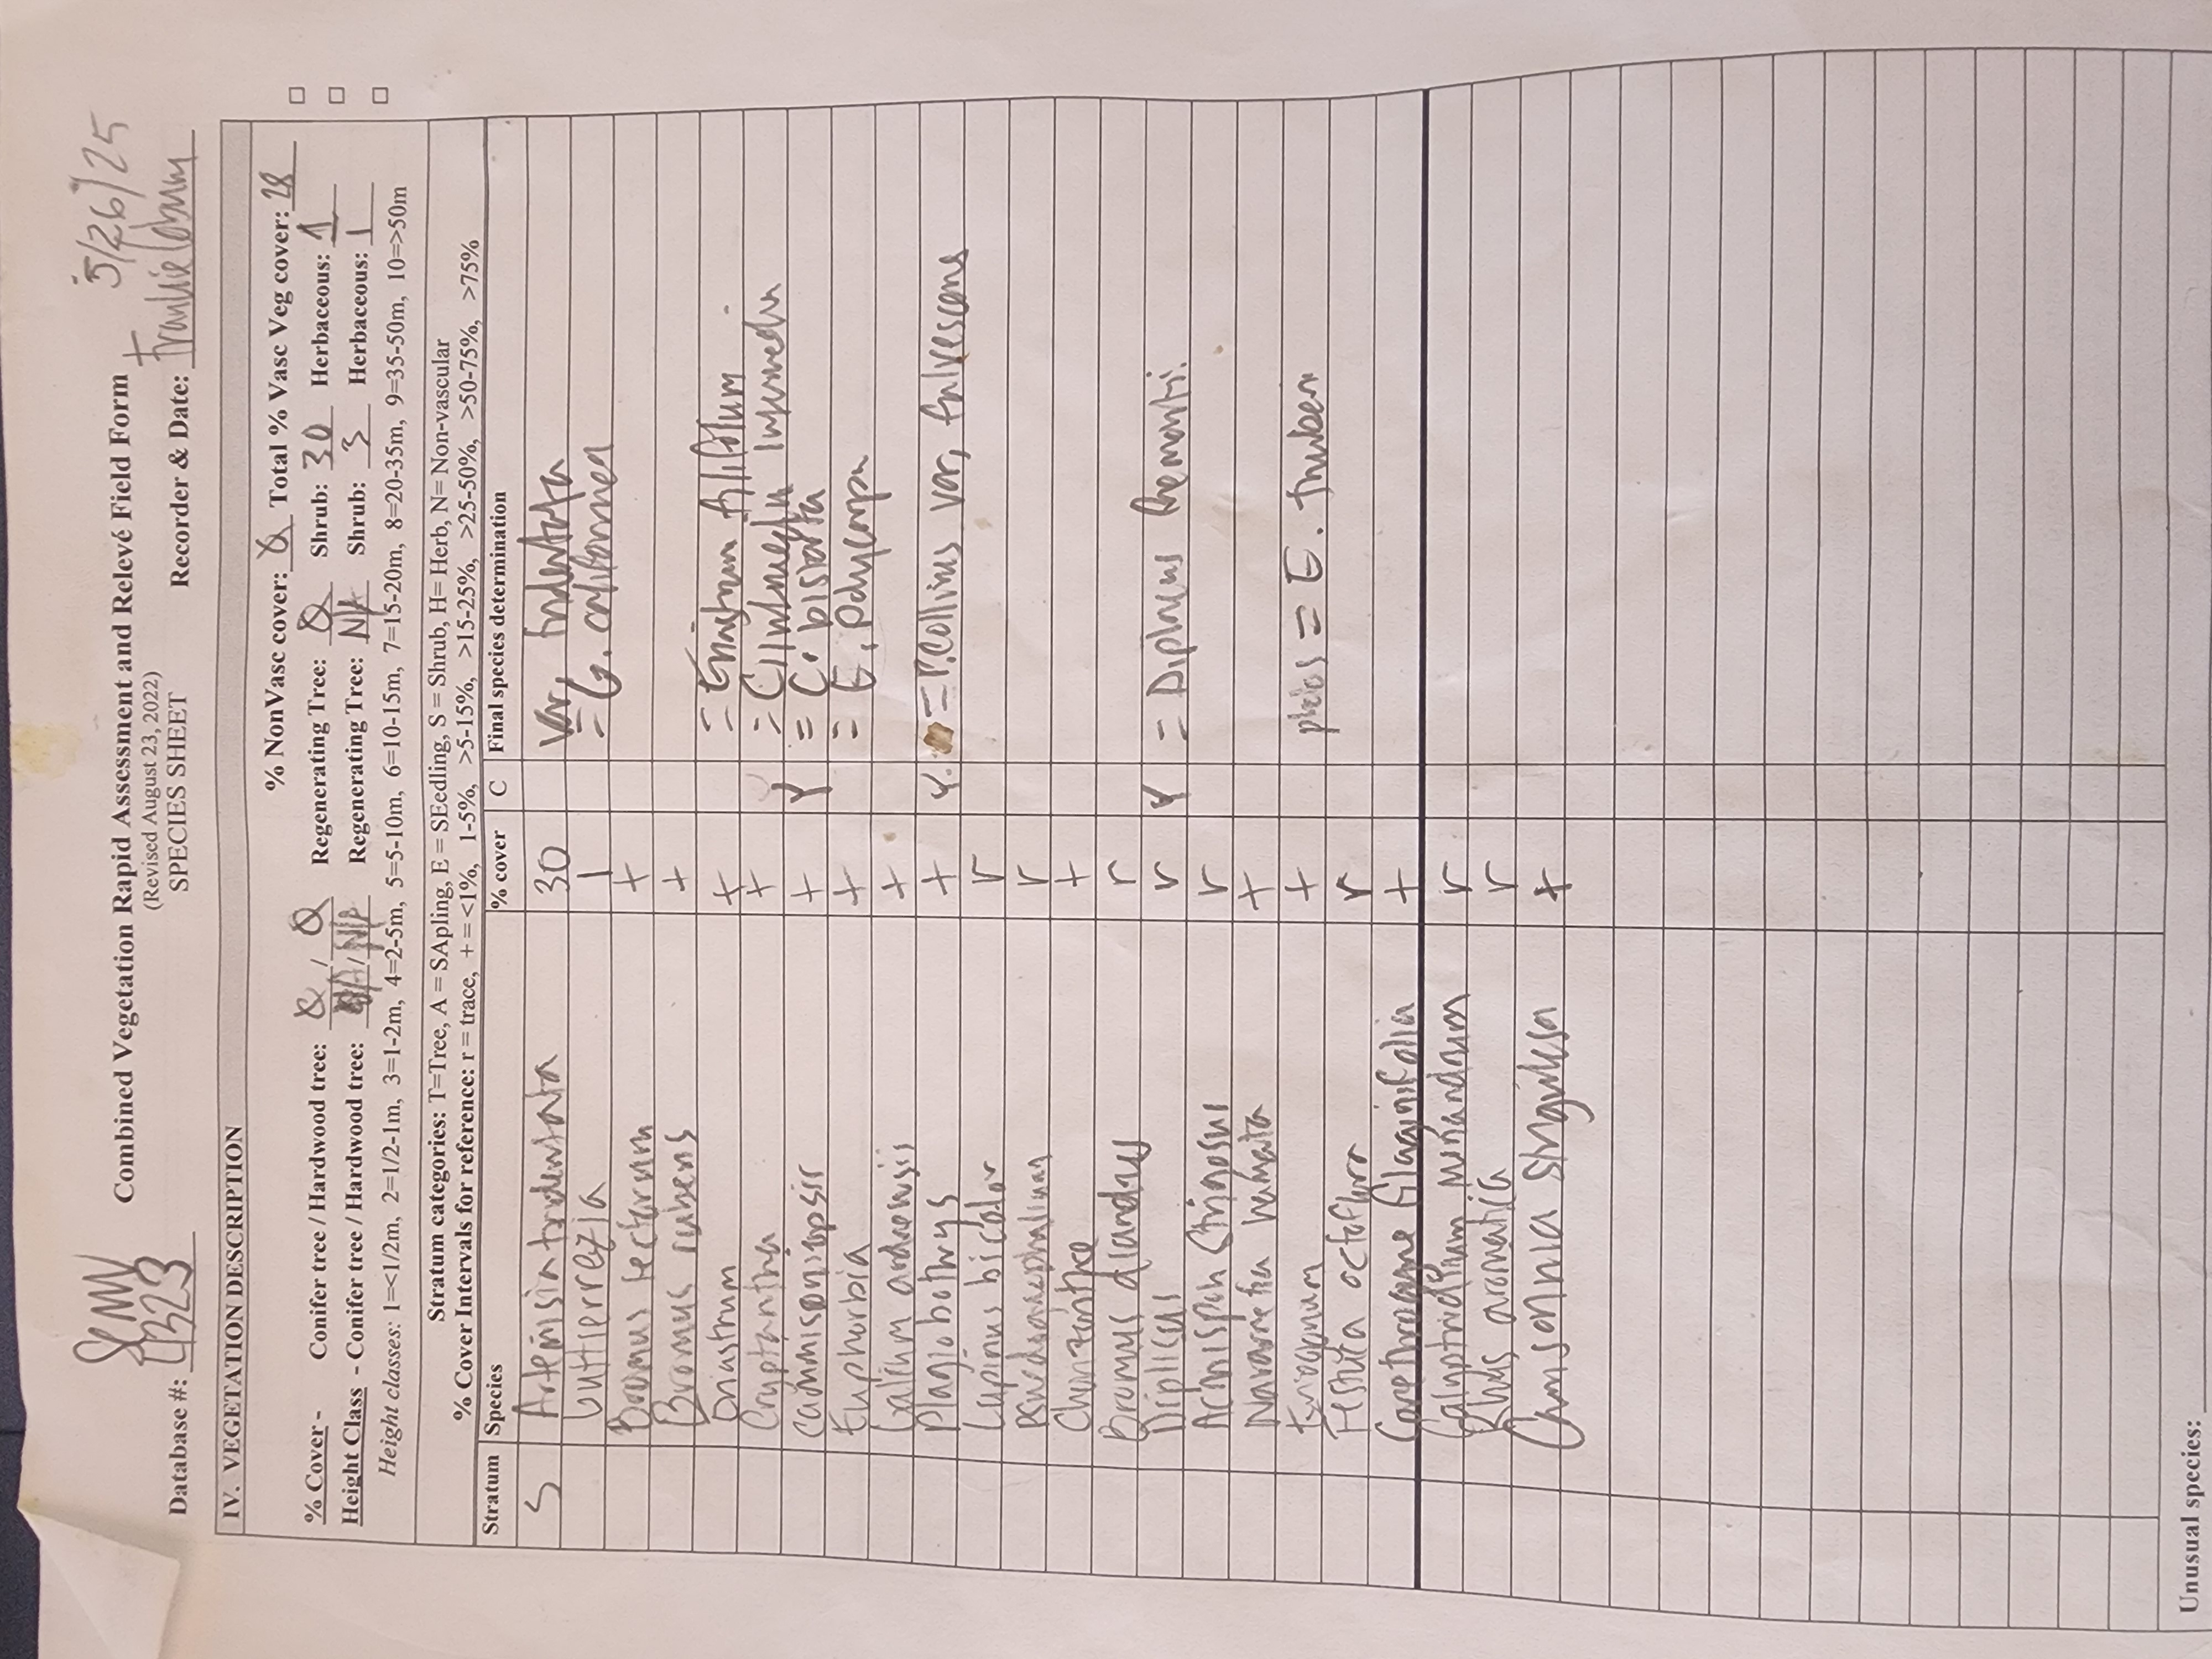 Combined Vegetation Rapid Assessment and Relevé Field Form 5/26/25
(Revised August 23, 2022)
Database #: 1323 SPECIES SHEET Recorder & Date: Frankie Coburn
IV. VEGETATION DESCRIPTION
% NonVasc cover: 0 Total % Vasc Veg cover: 28
% Cover - Conifer tree / Hardwood tree: 0 / 0 Regenerating Tree: 0 Shrub: 30 Herbaceous: 1
Height Class - Conifer tree / Hardwood tree: N/A / N/A Regenerating Tree: N/A Shrub: 3 Herbaceous: 1
Height classes: 1=<1/2m, 2=1/2-1m, 3=1-2m, 4=2-5m, 5=5-10m, 6=10-15m, 7=15-20m, 8=20-35m, 9=35-50m, 10=>50m
Stratum categories: T=Tree, A = SApling, E = SEedling, S = Shrub, H= Herb, N= Non-vascular
% Cover Intervals for reference: r = trace, + = <1%, 1-5%, >5-15%, >15-25%, >25-50%, >50-75%, >75%
Stratum Species % cover C Final species determination
S Artemisia tridentata 30 Var. tridentata
Gutierrezia 1 = G. californica
Bromus tectorum +
Bromus rubens +
Eriastrum + = Eriastrum filifolium
Cryptantha + Y = C intermedia
Camissoniopsis + Y = C. bistorta
Euphorbia + = E. polycarpa
Galium andrewsii +
Plagiobothrys + Y. = P. collinus var, fulvescens
Lupinus bicolor r
Pseudognaphalium r
Chorizanthe +
Bromus diandrus r
Diplicus r Y = Diplacus fremontii.
Acmispon strigosus r
Navarretia hamata +
Eriogonum + photos = E. thurberi
Festuca octoflora r
Corethrogyne filaginifolia +
Calyptridium monandrum r
Rhus aromatica r
Camissonia strigulosa +
Unusual species: